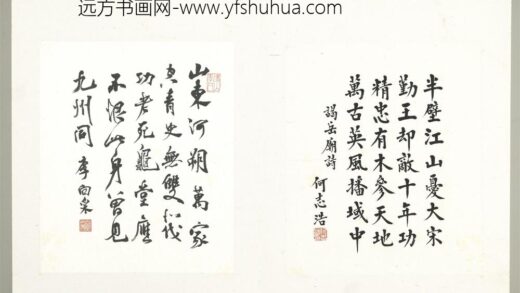 远方书画网- www.yfshuhua.com
半壁江山憂大宋
勤王却敵十年功
精忠有木參天地
萬古英風播域中
謁岳廟詩
何志浩
山東河朔萬家
真青史無雙
功老死龕堂應
不恨此身曾見
九州同